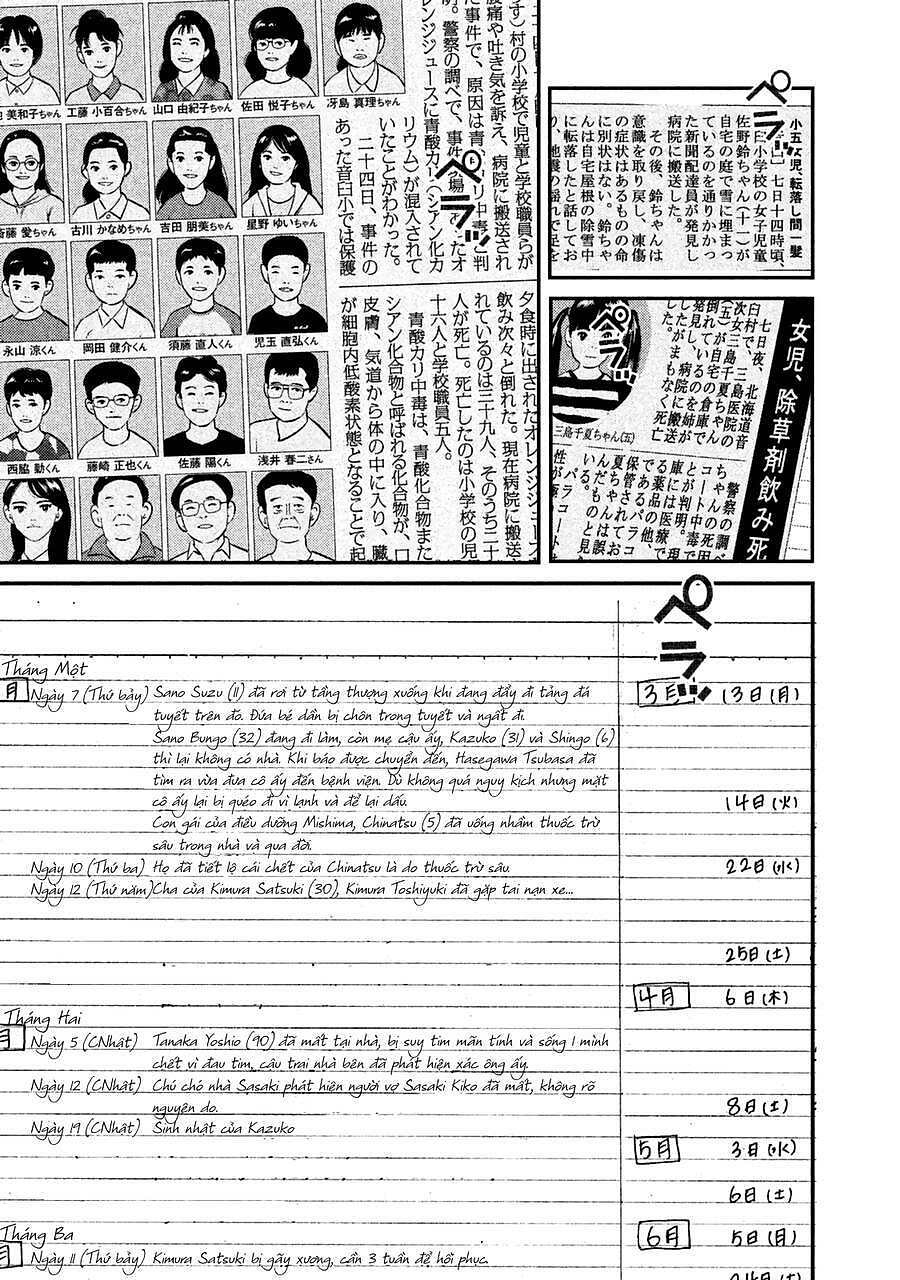 美和子ちゃん
工藤 小百合ちゃん
山口 由紀子ちゃん
佐田 悦子ちゃん
冴島 真理ちゃん
斎藤 愛ちゃん
古川 かなめちゃん
吉田 朋美ちゃん
星野 ゆいちゃん
永山 涼くん
岡田 健介くん
須藤 直人くん
児玉 直弘くん
西脇 勤くん
藤崎 正也くん
佐藤 陽くん
浅井 春二さん
村の小学校で児童と学校職員らが
腹痛や吐き気を訴え、病院に搬送され
た事件で、原因は青
警察の調べで、事件
レンジジュースに青酸カリ(シアン化カ
リウム)が混入されて
いたことがわかった。
二十四日、事件の
あった音臼小では保護
夕食時に出されたオレンジジュース
飲み次々と倒れた。現在病院に搬送
れているのは三十九人、そのうち二十
人が死亡。死亡したのは小学校の児
十六人と学校職員五人。
青酸カリ中毒は、青酸化合物また
シアン化合物と呼ばれる化合物が、口
皮膚、気道から体の中に入り、臓
が細胞内低酸素状態となることで起
ペラッ
小五女児、転落し間一髪
七日十四時頃、
臼小学校の女子児童
佐野鈴ちゃん(十一)が
自宅の庭で雪に埋まっ
ているのを通りかかっ
た新聞配達員が発見し
病院に搬送した。
その後、鈴ちゃんは
意識を取り戻し、凍傷
の症状はあるものの命
に別状はない。鈴ちゃ
んは自宅屋根の除雪中
に転落したと話してお
ペラッ
女児、除草剤飲み死
七日夜、北海道音
臼村で、三島医院の
次女三島千夏ちゃん
(五)が自宅の倉庫で
倒れているのを姉が
発見し、病院に搬送
したがまもなく死亡
した。
三島千夏ちゃん(五)
警察の調べ
ちゃんの死因
コート中毒で
とが判明。現
庫には医療で
る薬品の他、
であるパラコ
保管されてお
夏ちゃんは誤
んだものと見
いる。
パラコート
ペラッ
ペラッ
Tháng Một
月 Ngày 7 (Thứ bảy) Sano Suzu (11) đã rơi từ tầng thượng xuống khi đang đẩy đi tảng đá
tuyết trên đó. Đứa bé dần bị chôn trong tuyết và ngất đi.
Sano Bungo (32) đang đi làm, còn mẹ cậu ấy, Kazuko (31) và Shingo (6)
thì lại không có nhà. Khi báo được chuyển đến, Hasegawa Tsubasa đã
tìm ra vừa đưa cô ấy đến bệnh viện. Dù không quá nguy kịch nhưng mặt
cô ấy lại bị quéo đi vì lạnh và để lại dấu.
Con gái của điều dưỡng Mishima, Chinatsu (5) đã uống nhầm thuốc trừ
sâu trong nhà và qua đời.
Ngày 10 (Thứ ba) Họ đã tiết lộ cái chết của Chinatsu là do thuốc trừ sâu.
Ngày 12 (Thứ năm) Cha của Kimura Satsuki (30), Kimura Toshiyuki đã gặp tai nạn xe...
Tháng Hai
月 Ngày 5 (CNhật) Tanaka Yoshio (90) đã mất tại nhà, bị suy tim mãn tính và sống 1 mình
chết vì đau tim, cậu trai nhà bên đã phát hiện xác ông ấy.
Ngày 12 (CNhật) Chú chó nhà Sasaki phát hiện người vợ Sasaki Kiko đã mất, không rõ
nguyên do.
Ngày 19 (CNhật) Sinh nhật của Kazuko
Tháng Ba
月 Ngày 11 (Thứ bảy) Kimura Satsuki bị gãy xương, cần 3 tuần để hồi phục.
3月 13日(月)
14日(火)
22日(水)
25日(土)
4月 6日(木)
8日(土)
5月 3日(水)
6日(土)
6月 5日(月)
24日(土)